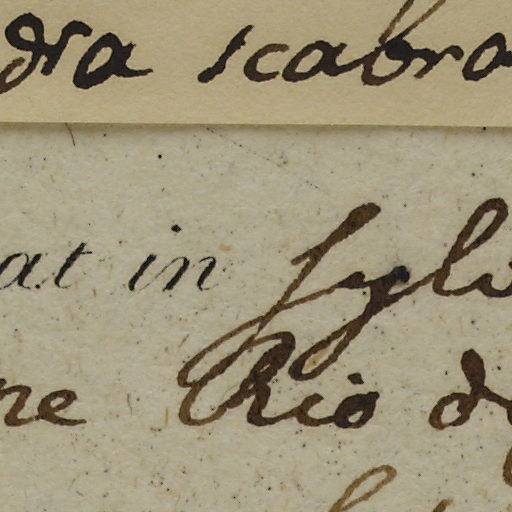 dra scabra
at in sylv
ne Rio d